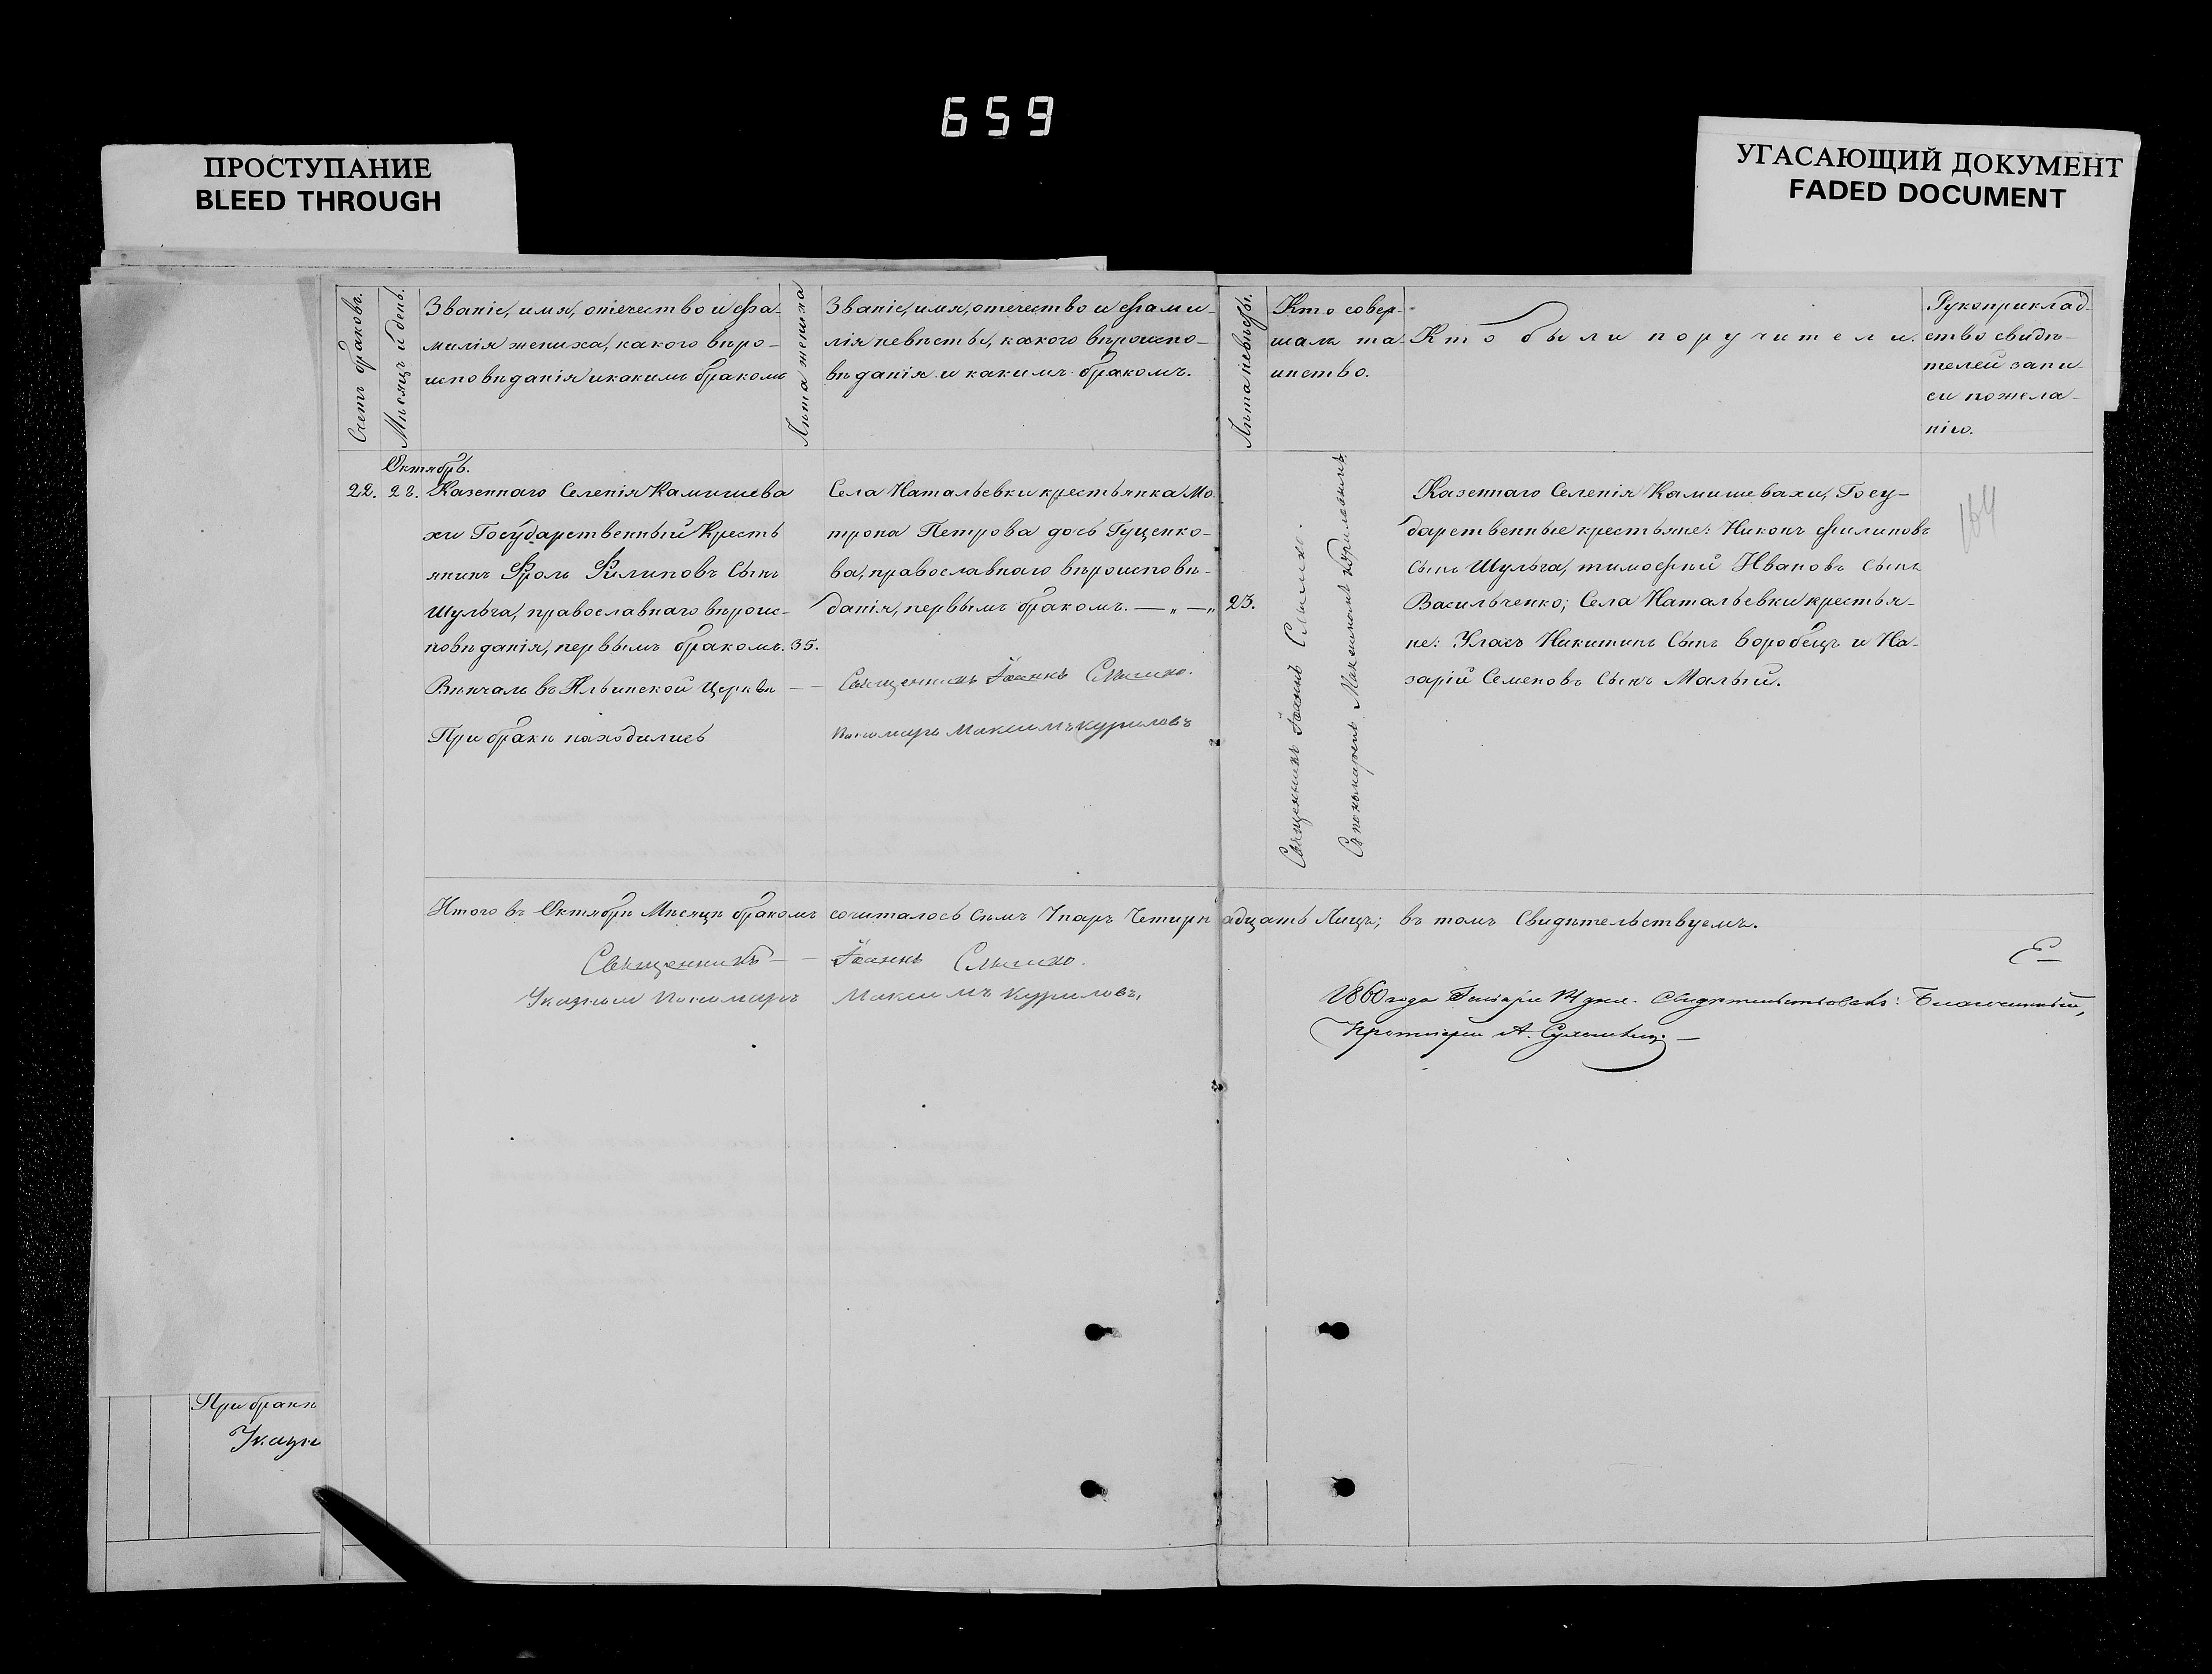 659
ПРОСТУПАНИЕ
BLEED THROUGH
УГАСАЮЩИЙ ДОКУМЕНТ
FADED DOCUMENT
Счетъ браковъ.
Мѣсяцъ и день.
Званіе, имя, отечество и фа-
милія жениха, какого вѣро-
исповѣданія и какимъ бракомъ
Лѣта жениха
Званіе, имя, отечество и фами-
лія невѣсты, какого вѣроиспо-
вѣданія и какимъ бракомъ.
Лѣта невѣсты.
Кто совер-
шалъ та-
инство.
Кто были поручители.
Рукоприклад-
ство свидѣ-
телей запи-
си по жела-
нію.
Октябрь.
22. 28. Казеннаго Селенія Камишева
хи Государственный Кресть
янинъ Фролъ Филиповъ Сынъ
Шульга, православнаго вѣроис-
повѣданія, первымъ бракомъ. 35.
Вѣнчалъ въ Ильинской Церкви — —
При бракѣ находились
Села Натальевки крестьянка Мо
трона Петрова дочь Гуценко-
ва, православнаго вѣроисповѣ-
данія, первымъ бракомъ. — „ — „ 23.
Священникъ Іоаннъ
Пономарь Максимъ Куриловъ
Священникъ Іоаннъ
Съ пономаремъ Максимомъ Куриловымъ.
Казеннаго Селенія Камишевахи, Госу-
дарственные крестьяне: Никонъ Филиповъ
Сынъ Шульга, Тимофей Ивановъ Сынъ
Васильченко; Села Натальевки крестья-
не: Уласъ Никитинъ Сынъ Воробецъ и На-
зарій Семеновъ Сынъ Малый.
164
Итого въ Октябрѣ Мѣсяцѣ бракомъ сочиталось Семъ 7 паръ Четирнадцать Лицъ; въ томъ Свидѣтельствуемъ.
Священникъ — — Іоаннъ
Указный Пономарь Максимъ Куриловъ.
1860 года Генваря 14 дня. Свидѣтельствовалъ: Благочинный,
Протоіерей А.
При бракѣ
Указн